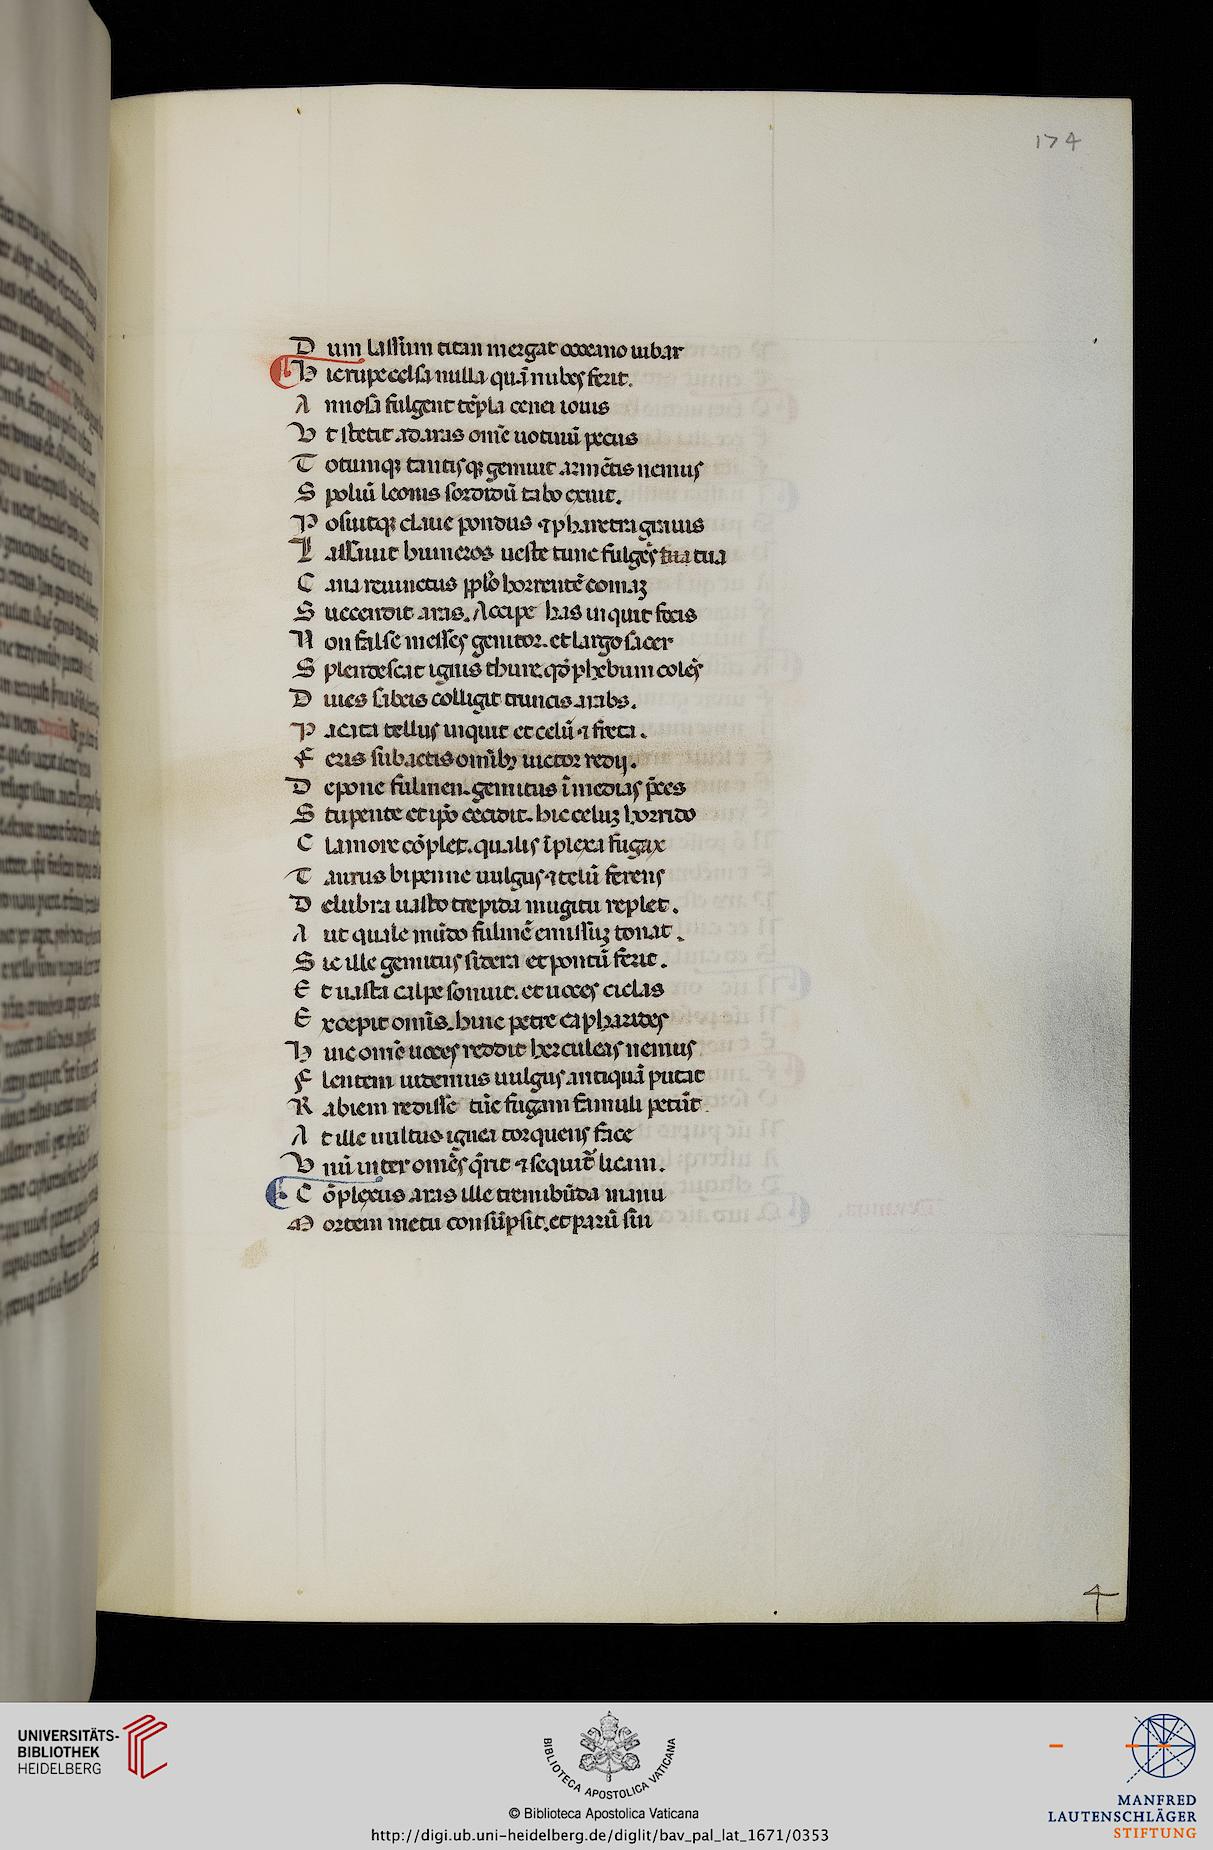 174
D um lassum titan mergat occeano iubar
H ic rupe celsa nulla quā nubes ferit.
A nnosa fulgent tēpla cenei iouis
V t stetit ad aras omē uotiuū pecus
T otumqꝫ tantis qꝫ gemuit armētis nemus
S poliū leonis sordidū tabo exuit.
P osuitqꝫ claue pondus ⁊ pharetra grauis
L assauit humeros ueste tunc fulges tua
C ana reuinctus horrentē comaꝫ
S uccendit aras. Accipe has inquit focis
N on false messes genitor. et largo sacer
S plendescat ignis thure. phebum coles
D iues sabeis colligit truncis arabs.
P acata tellus inquit et celū ⁊ freta.
F eris subactis omībꝫ uictor redij.
D epone fulmen. gemitus ī medias p̄ces
S tupente et ip̄o cecidit. hic celuꝫ horrido
C lamore cōplet. qualis īplexa fugax
T aurus bipenne uulgus ⁊ telū ferens
D elubra uasto trepida mugitu replet.
A ut quale mūdo fulmē emissuꝫ tonat.
S ic ille gemitus sidera et pontū ferit.
E t uasta calpe sonuit. et uoces ciclas
E xcepit omīs. hinc petre capharides
H inc omē uoces reddit herculeas nemus
F lentem uidemus uulgus antiquā putat
R abiem redisse tūc fugam famuli petūt
A t ille uultus ignea torquens face
V nū inter omēs q̄rit ⁊ sequit᷑ licam.
C ōplexus aras ille tremibūda manu
M ortem metu consūpsit. et parū sui
4
UNIVERSITÄTS-
BIBLIOTHEK
HEIDELBERG
BIBLIOTECA APOSTOLICA VATICANA
© Biblioteca Apostolica Vaticana
http://digi.ub.uni-heidelberg.de/diglit/bav_pal_lat_1671/0353
MANFRED
LAUTENSCHLÄGER
STIFTUNG